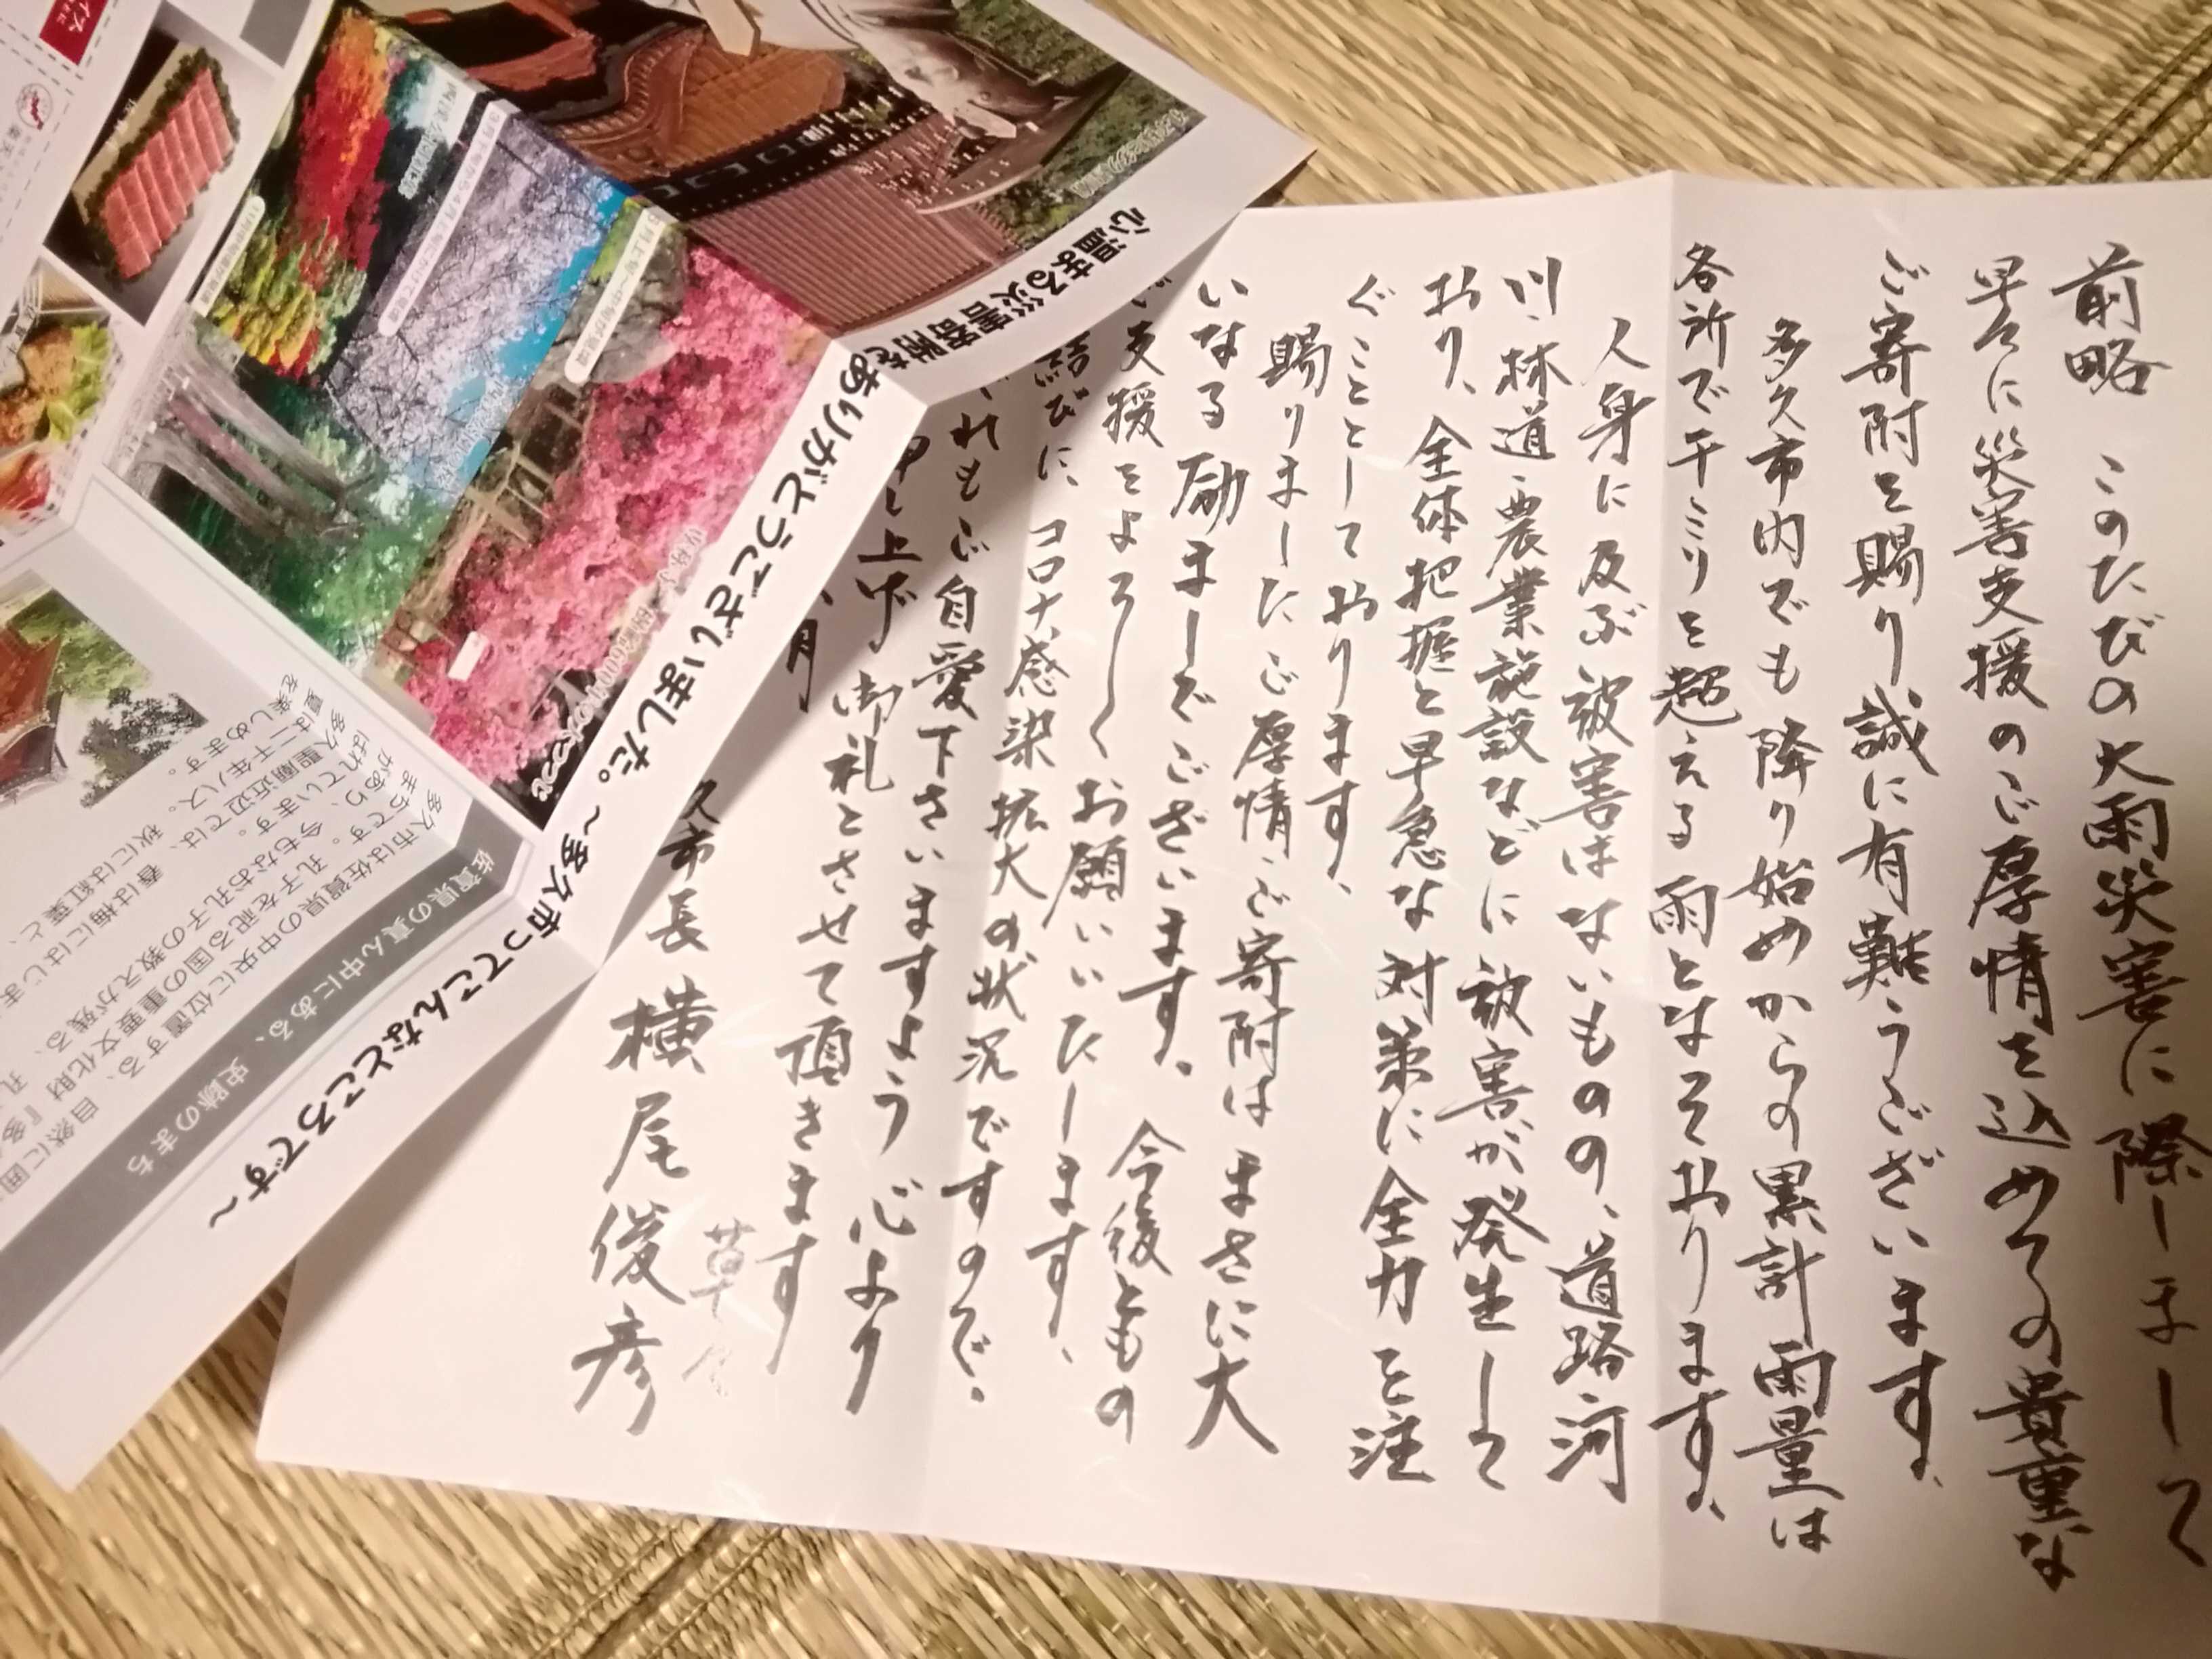 前略 このたびの大雨災害に際しまして
早々に災害支援のご厚情を込めての貴重な
ご寄附を賜り誠に有難うございます。
多久市内でも降り始めからの累計雨量は
各所で千ミリを超える雨となっております。
人身に及ぶ被害はないものの、道路・河
川・林道・農業施設などに被害が発生して
おり、全体把握と早急な対策に全力を注
ぐこととしております。
賜りましたご厚情・ご寄附はまさに大
いなる励ましでございます。今後とも
支援をよろしくお願いいたします。
結びに、コロナ感染拡大の状況ですので、
れもご自愛下さいますよう心より
申し上げ御礼とさせて頂きます
月
草々
久市長 横尾俊彦
心温まる災害寄附をありがとうございました。~多久市ってこんなところです~
佐賀県の真ん中にある、史跡のまち
多久市は佐賀県の中央に位置する、自然に囲
まちです。孔子を祀る国の重要文化財『多
があり、今もなお孔子の教えが残る、孔
ばれています。
多久聖廟近辺では、春は梅にはじま
夏は二千年ハス。秋には紅葉と、
を楽しめます。